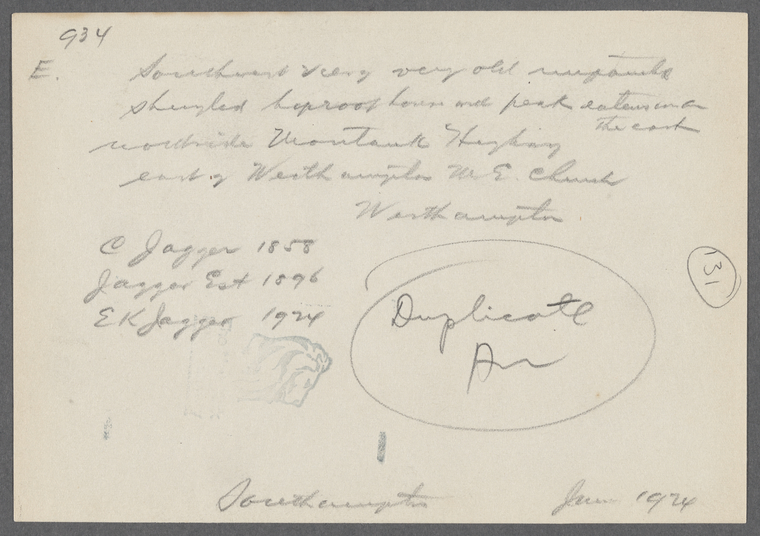 934
E. Southwest view very old unpainted
shingled hiproof house and peak extension on
the east
northside Montauk Highway
east of Westhampton M.E. Church
Westhampton
C Jagger 1858
Jagger Est 1896
E K Jagger 1924
131
Duplicate
Southampton June 1924